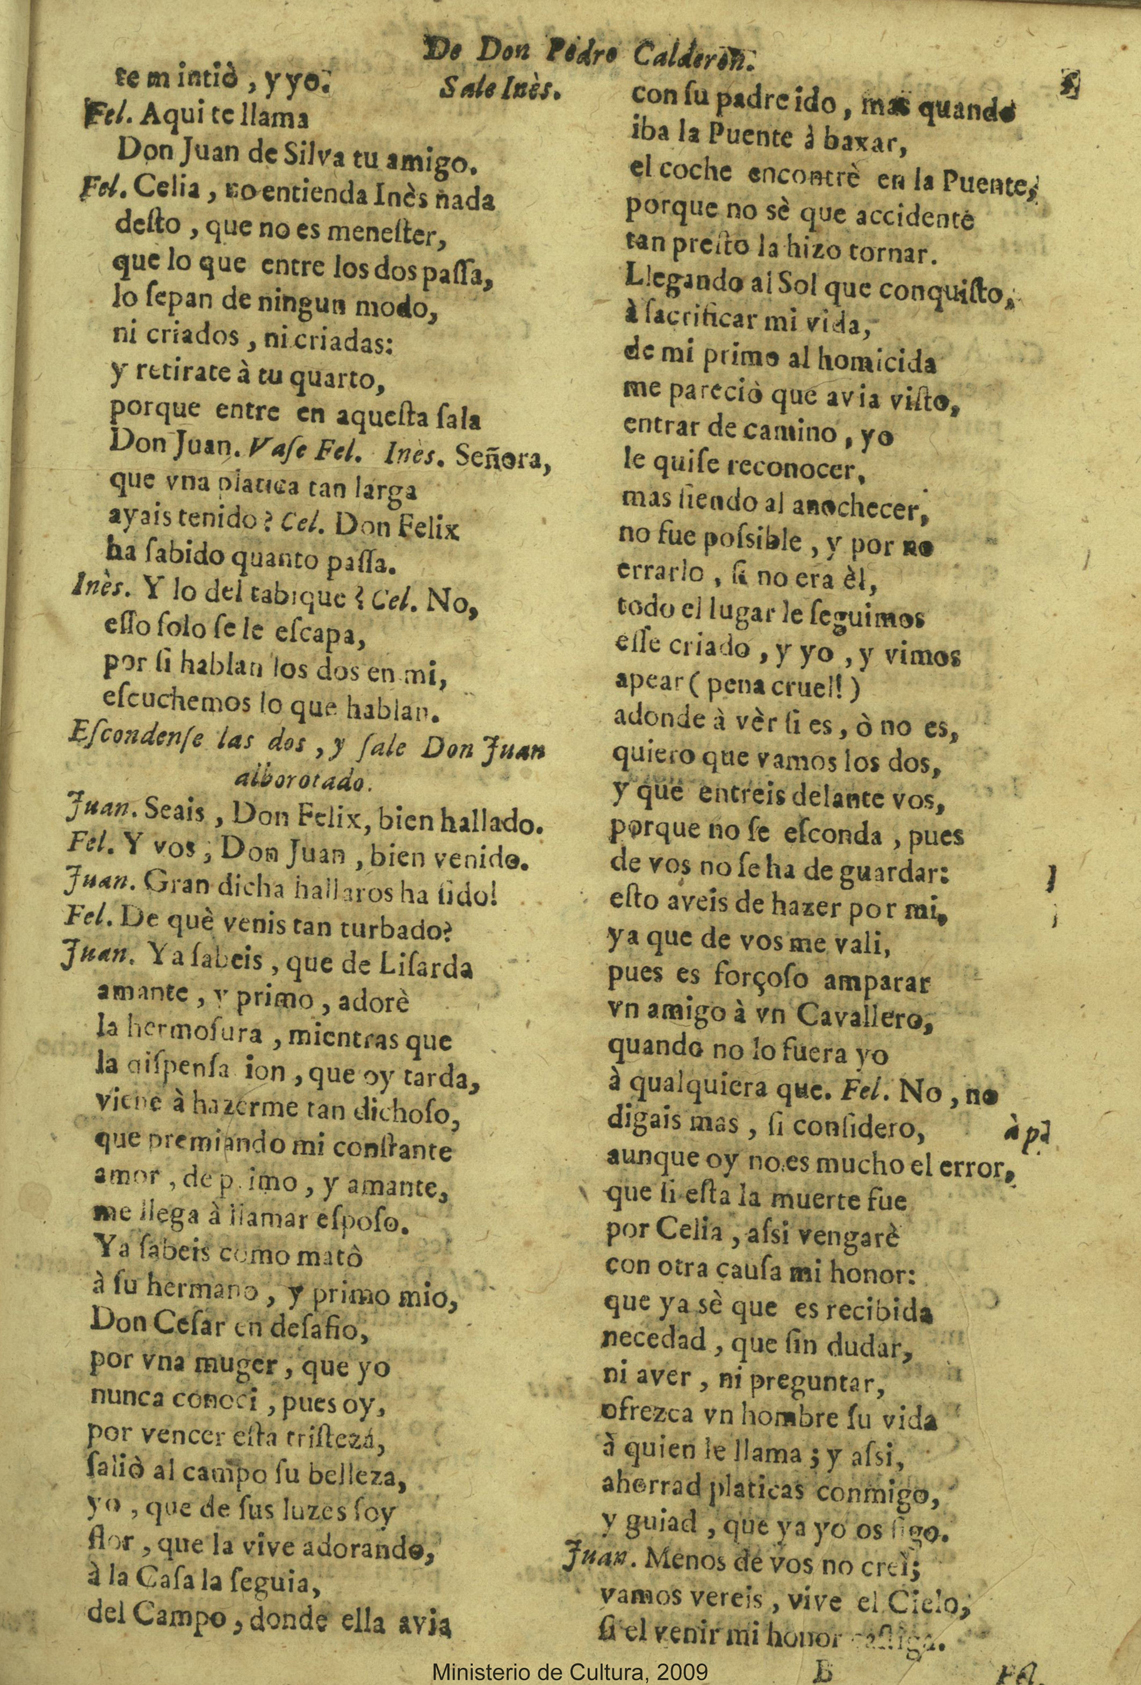 De Don Pedro Calderon.
te mintiò, y yo. Sale Inès.
Fel. Aqui te llama
Don Juan de Silva tu amigo.
Fel. Celia, no entienda Inès nada
desto, que no es menester,
que lo que entre los dos passa,
lo sepan de ningun modo,
ni criados, ni criadas:
y retirate à tu quarto,
porque entre en aquesta sala
Don Juan. Vase Fel. Inès. Señora,
que vna platica tan larga
ayais tenido? Cel. Don Felix
ha sabido quanto passa.
Inès. Y lo del tabique? Cel. No,
esso solo se le escapa,
por si hablan los dos en mi,
escuchemos lo que hablan.
Escondense las dos, y sale Don Juan
alborotado.
Juan. Seais, Don Felix, bien hallado.
Fel. Y vos, Don Juan, bien venido.
Juan. Gran dicha hallaros ha sido!
Fel. De què venis tan turbado?
Juan. Ya sabeis, que de Lisarda
amante, y primo, adorè
la hermosura, mientras que
la dispensa ion, que oy tarda,
viene à hazerme tan dichoso,
que premiando mi constante
amor, de primo, y amante,
me llega à llamar esposo.
Ya sabeis como matò
à su hermano, y primo mio,
Don Cesar en desafio,
por vna muger, que yo
nunca conoci, pues oy,
por vencer esta tristeza,
saliò al campo su belleza,
yo, que de sus luzes soy
flor, que la vive adorando,
à la Casa la seguia,
del Campo, donde ella avia
con su padre ido, mas quando
iba la Puente à baxar,
el coche encontrè en la Puente,
porque no sè que accidente
tan presto la hizo tornar.
Llegando al Sol que conquisto,
à sacrificar mi vida,
de mi primo al homicida
me pareciò que avia visto,
entrar de camino, yo
le quise reconocer,
mas siendo al anochecer,
no fue possible, y por no
errarlo, si no era èl,
todo el lugar le seguimos
esse criado, y yo, y vimos
apear (pena cruel!)
adonde à vèr si es, ò no es,
quiero que vamos los dos,
y que entreis delante vos,
porque no se esconda, pues
de vos no se ha de guardar:
esto aveis de hazer por mi,
ya que de vos me vali,
pues es forçoso amparar
vn amigo à vn Cavallero,
quando no lo fuera yo
à qualquiera que. Fel. No, no
digais mas, si considero, àp.
aunque oy no es mucho el error,
que si esta la muerte fue
por Celia, assi vengarè
con otra causa mi honor:
que ya sè que es recibida
necedad, que sin dudar,
ni aver, ni preguntar,
ofrezca vn hombre su vida
à quien le llama; y assi,
ahorrad platicas conmigo,
y guiad, que ya yo os sigo.
Juan. Menos de vos no creì;
vamos vereis, vive el Cielo,
si el venir mi honor
B Fel.
Ministerio de Cultura, 2009